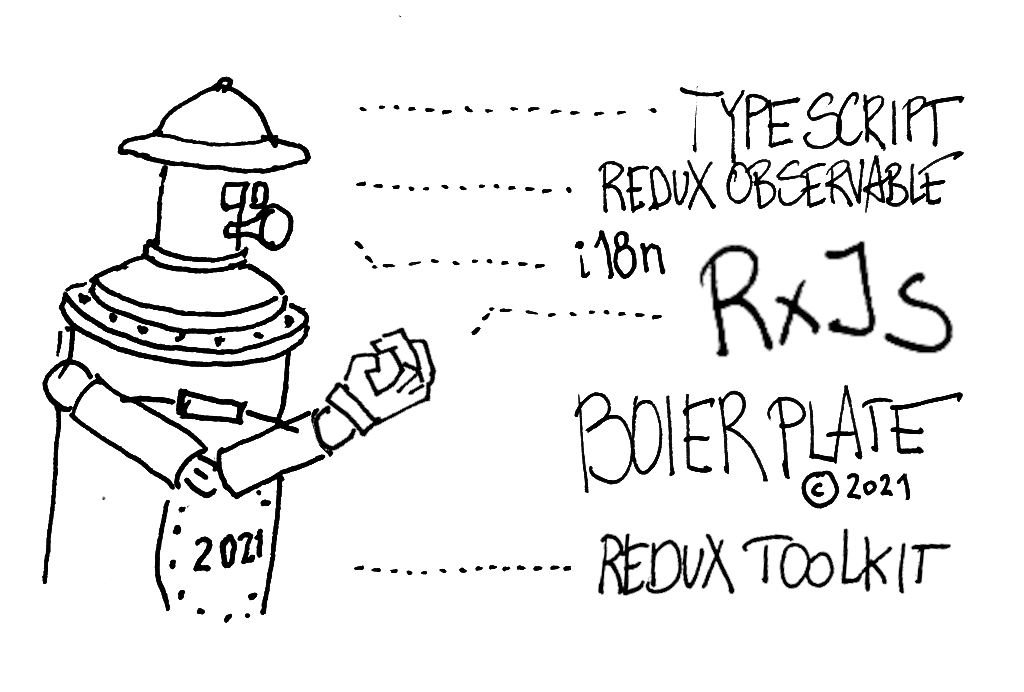 TYPESCRIPT
REDUX OBSERVABLE
i18n
RxJS
BOIERPLATE
© 2021
2021
REDUX TOOLKIT